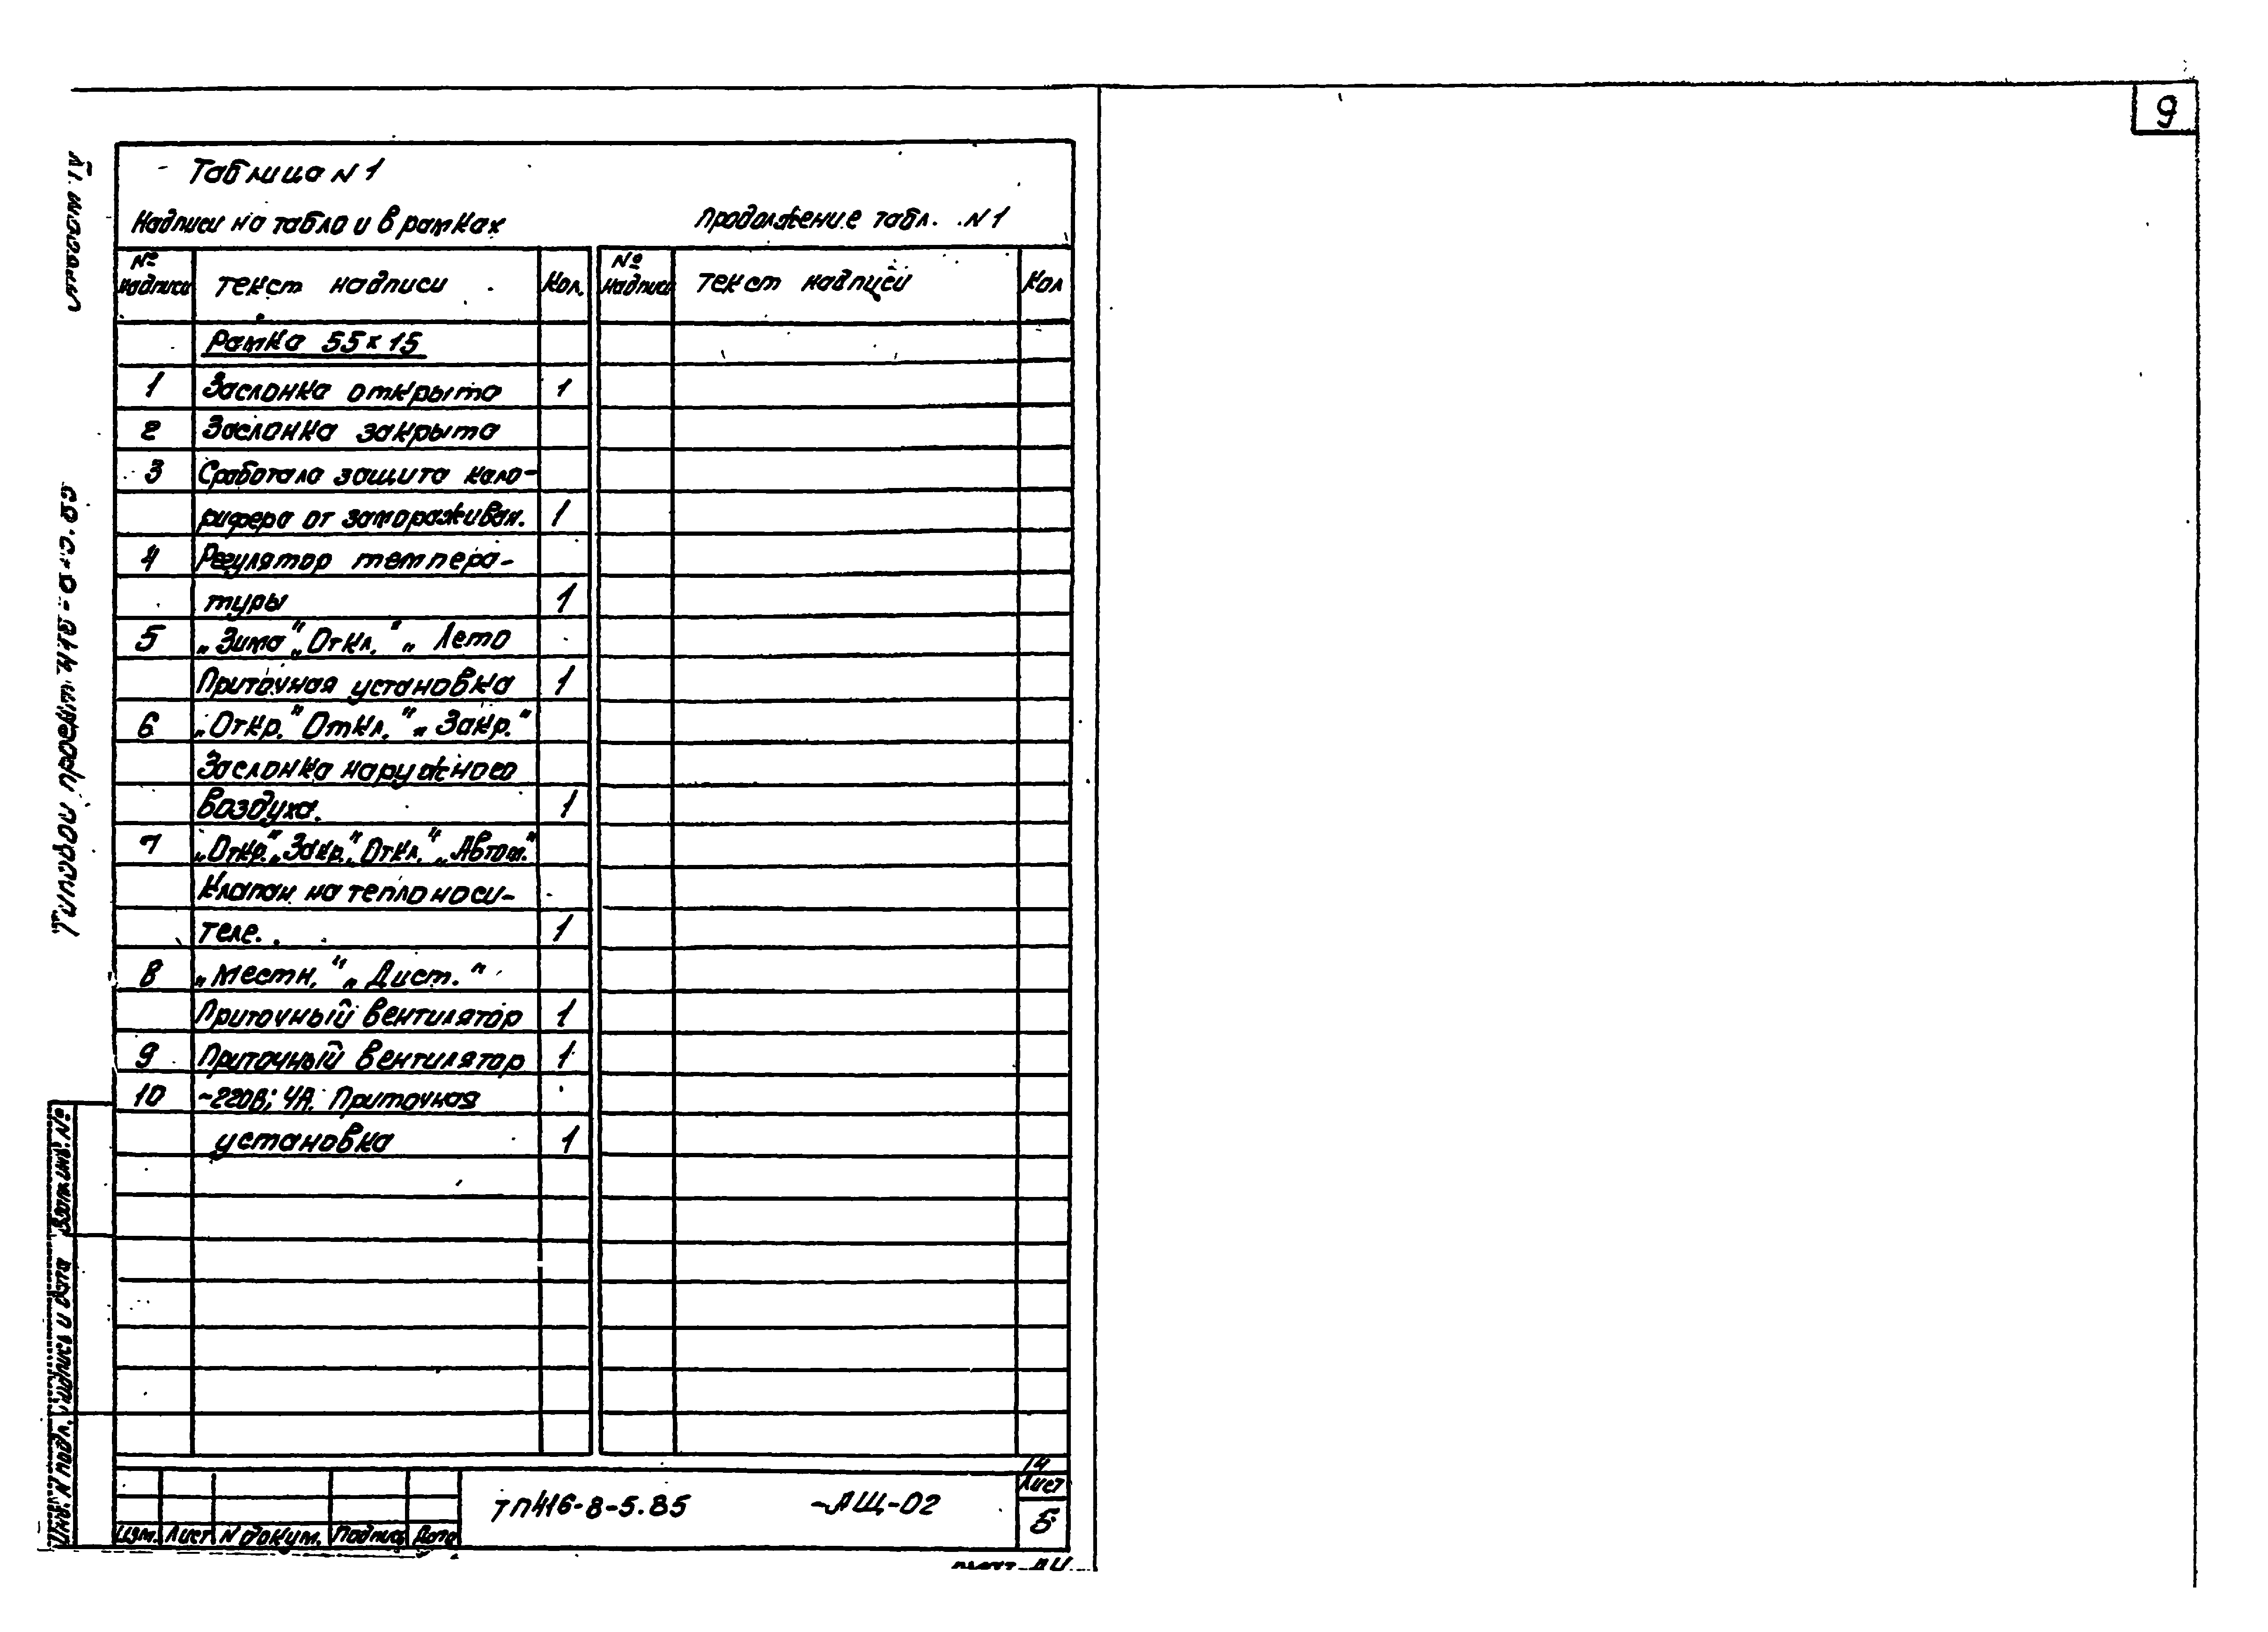 9
Таблица N 1
Надписи на табло и в рамках
Продолжение табл. N 1
№ надписи текст надписи Кол. № надписи текст надписи Кол
Рамка 55х15
1 Заслонка открыта 1
2 Заслонка закрыта
3 Сработала защита кало-
рифера от замораживан. 1
4 Регулятор темпера-
туры 1
5 „Зима" „Откл." „Лето
Приточная установка 1
6 „Откр." Откл." „Закр."
Заслонка наружного
воздуха. 1
7 „Откр." „Закр." „Откл." „Автом."
Клапан на теплоноси-
теле. 1
8 „Местн." „Дист."
Приточный вентилятор 1
9 Приточный вентилятор 1
10 ~220В; 4А. Приточная
установка 1
14
ТП416-8-5.85 -АЩ-02
Лист
5
Изм. Лист N докум. Подпись Дата
Типовой проект 416-8-5.85
Инв. N подл. Подпись и дата Взам инв. №